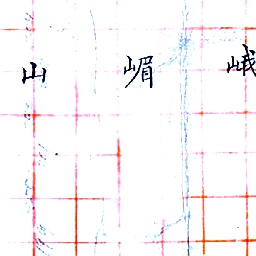 山 嵋 峨